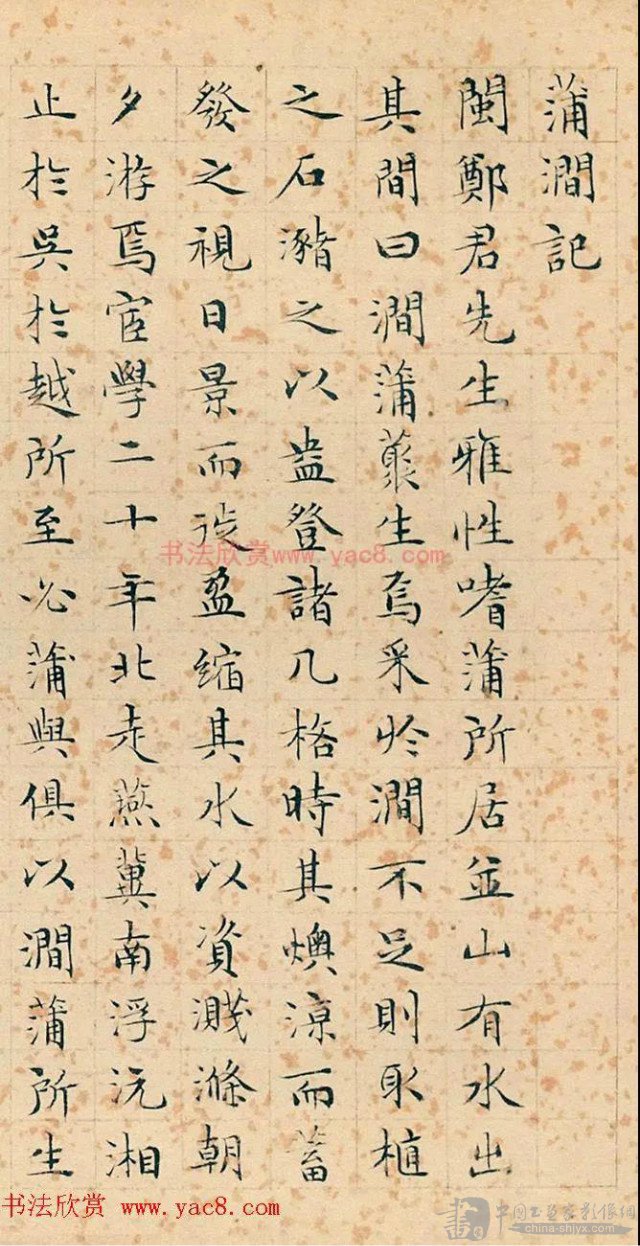 蒲澗記
閩鄭君先生雅性嗜蒲所居並山有水出
其間曰澗蒲叢生焉采於澗不足則取植
之石瀦之以盎登諸几格時其燠涼而蓄
發之視日景而徙盈縮其水以資濺滌朝
夕游焉宦學二十年北走燕冀南浮沅湘
止於吳於越所至必蒲與俱以澗蒲所生
书法欣赏 www.yac8.com
书法欣赏 www.yac8.com
china-shjyx.com